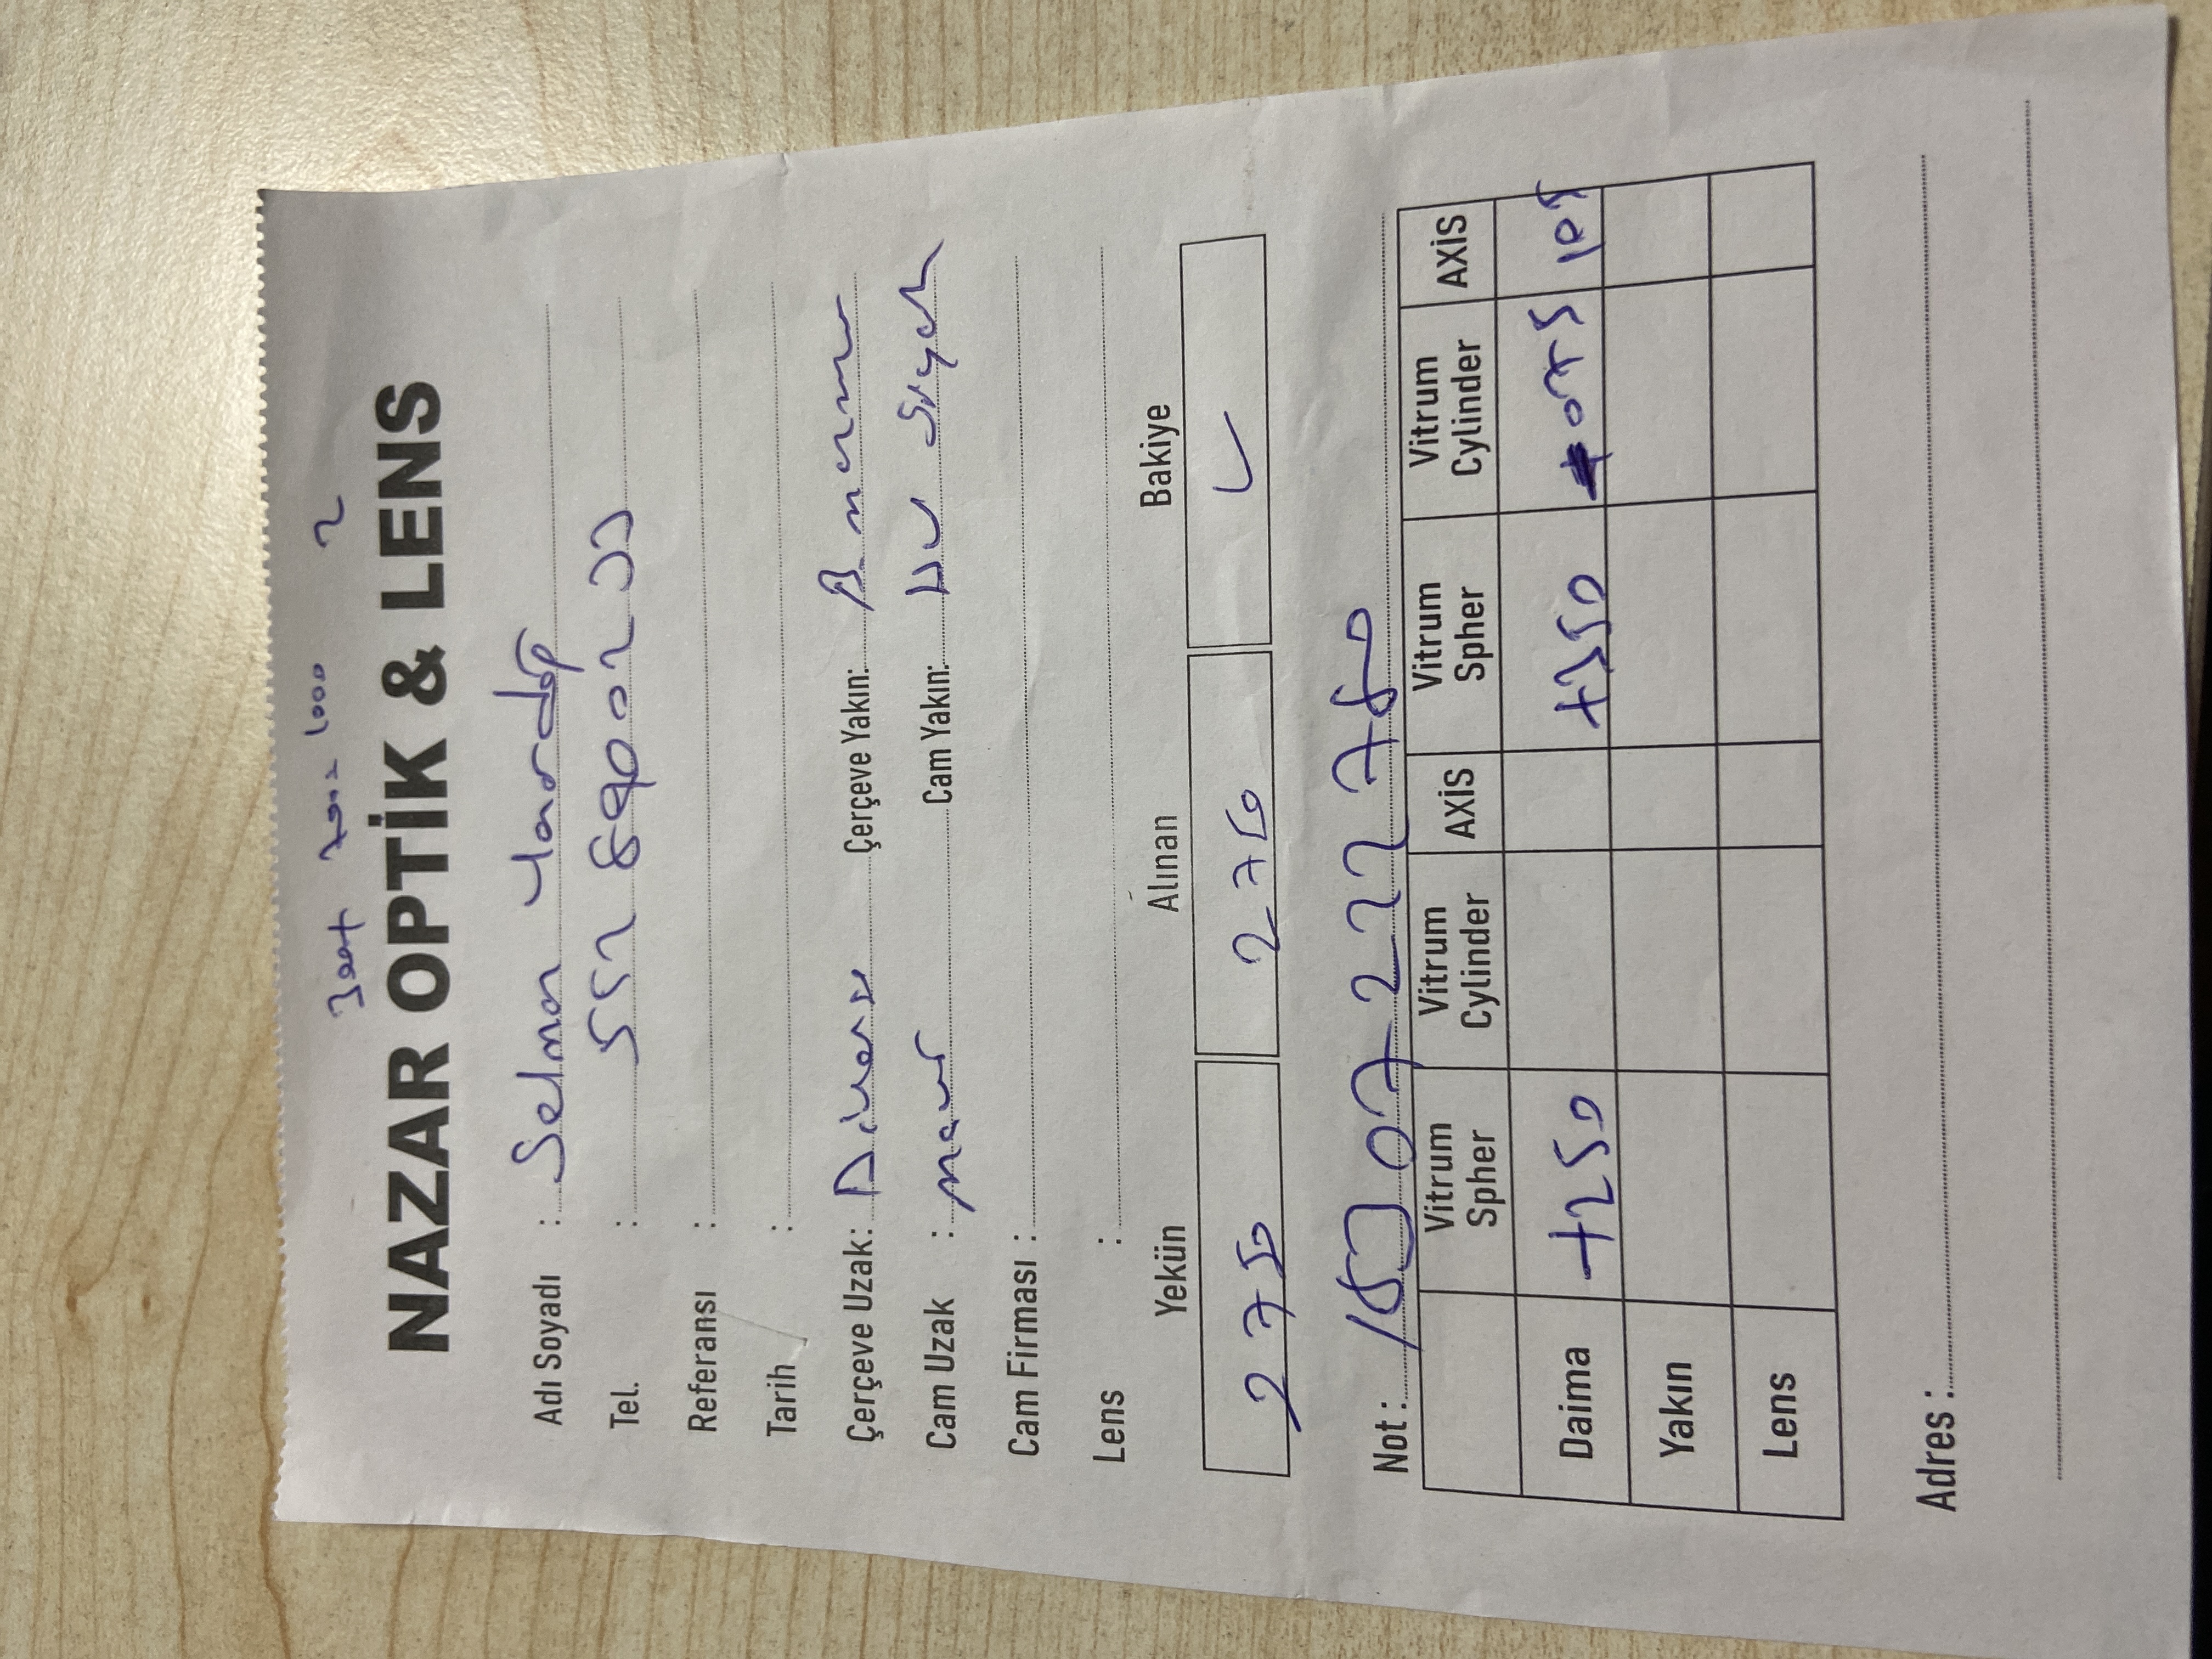 300+ 700= 1000 2
NAZAR OPTİK & LENS
Adı Soyadı : Selman
Tel. : 552 8900233
Referansı :
Tarih :
Çerçeve Uzak: Çerçeve Yakın:
Cam Uzak : mavi Cam Yakın: Siyah
Cam Firması :
Lens :
Yekün Alınan Bakiye
2750 2750 ✓
Not : 15307222780
Vitrum Spher Vitrum Cylinder AXİS Vitrum Spher Vitrum Cylinder AXİS
Daima +250 +350 075 105
Yakın
Lens
Adres :